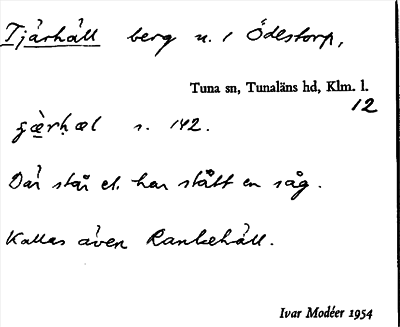 Tjärhäll berg n. / Ödestorp,
Tuna sn, Tunaläns hd, Klm. l.
12
s. 142.
Där står el. har stått en såg.
Kallas även Rankehäll.
Ivar Modéer 1954